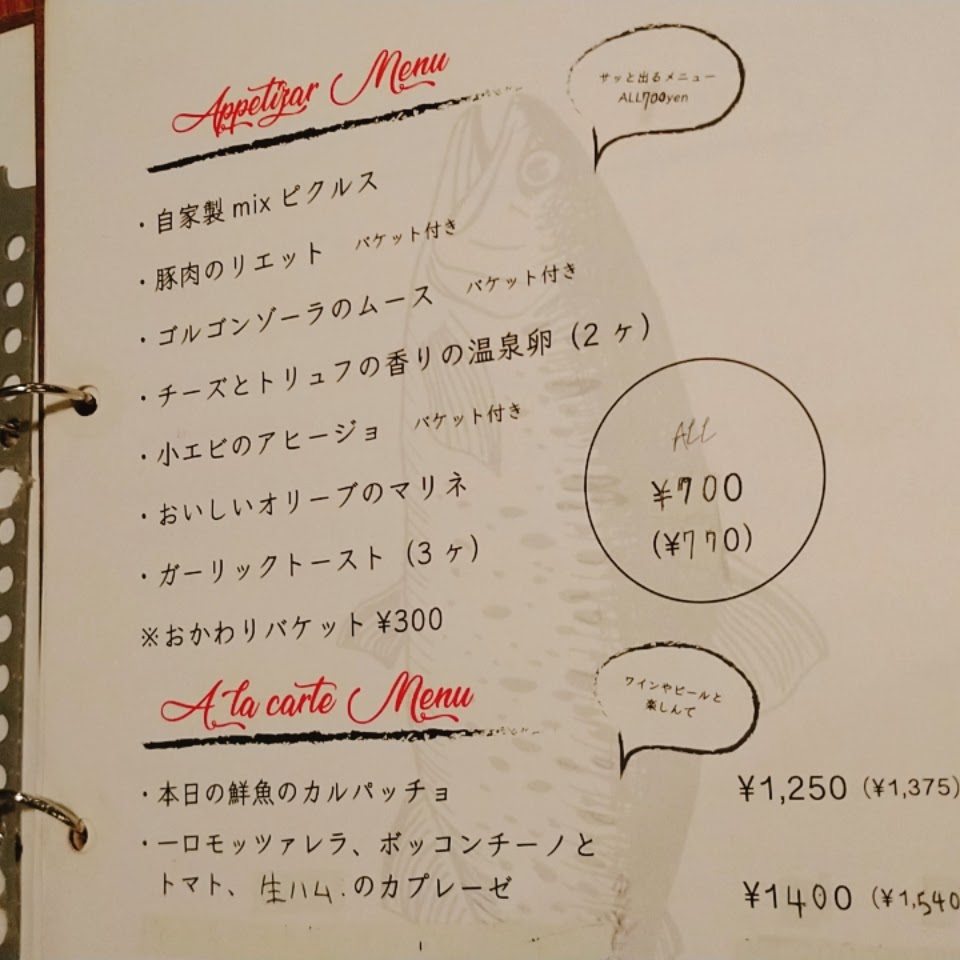 Appetizar Menu
サッと出るメニュー
ALL700yen
・自家製mixピクルス
・豚肉のリエット バケット付き
・ゴルゴンゾーラのムース バケット付き
・チーズとトリュフの香りの温泉卵（2ヶ）
・小エビのアヒージョ バケット付き
・おいしいオリーブのマリネ
・ガーリックトースト（3ヶ）
※おかわりバケット ¥300
ALL
¥700
(¥770)
A la carte Menu
ワインやビールと
楽しんて
・本日の鮮魚のカルパッチョ ¥1,250 (¥1,375)
・一口モッツァレラ、ボッコンチーノと
トマト、生ハム.のカプレーゼ ¥1400 (¥1,540